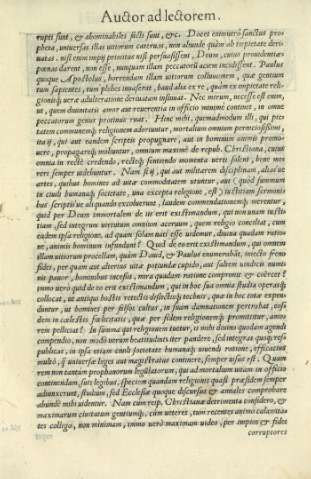 Auctor ad lectorem.
rupti sunt, & abominabiles facti sunt, &c. Docet enim verò sanctus pro
pheta, universas illas vitiorum catervas, non aliunde quàm ab impietate deri
vatas. nisi enim impij prorsus nisi persuasissent, Deum, cuius providentiae
poenas darent, non esse, nunquam illam peccatorū aciem incidissent. Paulus
quoque Apostolus, horrendam illam vitiorum colluviem, quae gentium
tum sapientes, tum plebes invaserat, haud alia ex re, quàm ex impietate reli-
gionisq́; verae adulteratione derivatam insinuat. Nec mirum, necesse est enim,
ut, quem divinitatis amor aut reverentia in officio nequit continere, in omne
peccatorum genus protinus ruat. Hinc mihi, quemadmodum illi, qui pie
tatem communemq́; religionem adoriuntur, mortalium omnium perniciosissimi,
ita ij, qui aut eandem scriptis propugnare, aut in hominum animis promo-
vere, propagareq́; moliuntur, omnium maximè de repub. Christiana, cuius
omnia in rectè credendo, rectéq́; sentiendo momenta verti solent, bene me-
reri semper videbuntur. Nam si ij, qui aut militarem disciplinam, alias ve
artes, quibus homines ad vitae commoditatem utuntur, aut (quod summum
in civili humanaq́; societate, una excepta religione, est) iustitiam sermonis
bus scriptis'ue aliquando excoluerunt, laudem commendationemq́; merentur,
quid per Deum immortalem de iis erit existimandum, qui non unam iusti-
tiam, sed integrum virtutum omnium acervum, quem religio conciliat, cum
eadem ipsa religione, ad quam solam nasci esse videmur, divina quadam ratio
ne, animis hominum infundunt? Quid de eo erit existimandum, qui omnem
illam vitiorum procellam, quam David, & Paulus enumerabāt, iniecto freno
fidei, per quam aut alterius vitae potiundae cupido, aut saltem vindicis numi
nis pavor, hominibus inceßit, mira quadam ratione comprimit & coërcet?
Immo verò quid de eo erit existimandum, qui in hoc sua omnia studia operamq́;
collocat, ut antiqui hostis retectis disiectisq́; technis, quas in hoc antè expen-
debatur, ut homines per falsos cultus, in suam damnationem pertrahat, eos-
dem in caelestis foelicitatis, quae per fidem religionemq́; promittitur, amo-
rem pelliciat? In summa qui religionem tuetur, is mihi divini quodam agendi
compendio, non modò iterum beatitudinis iter pandere, sed integras quoq́; res
publicas, in ipsa etiam civili societate humanisq́; vivendi ratione, efficacius
multò, q̃ universae leges aut magistratus continere, semper visus est. Quam
rem non tantum prophanorum legislatorum, qui ad mortalium vitam in officio
continendam, suis legibus, speciem quandam religionis quasi praesidem semper
adiunxerunt, studium, sed Ecclesiae quoque discursus & annales comprobare
abundè mihi videntur. Nam cùm reip. Christianae detrimenta considero, &
maximarum civitatum gentiumq́;, cùm veteres, tum recentes animo calamita-
tes colligo, non minimam, immo verò maximam video, per impios & fidei
corruptores